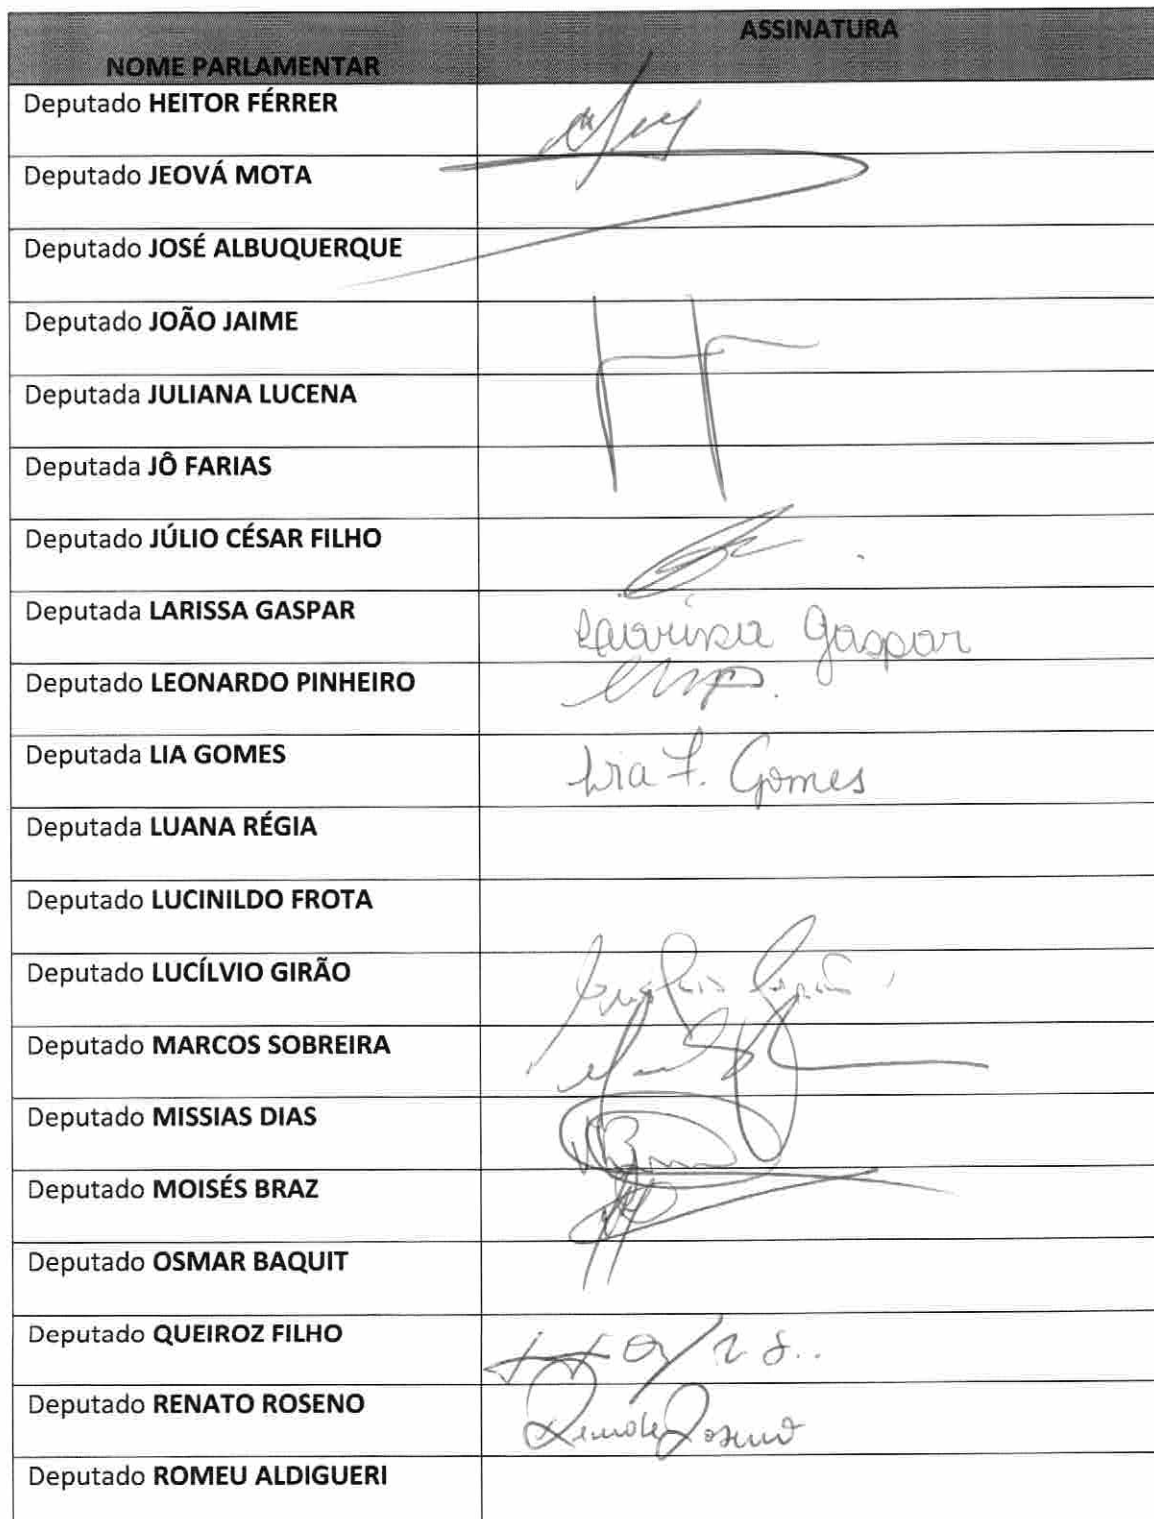 ASSINATURA
NOME PARLAMENTAR
Deputado HEITOR FÉRRER
Deputado JEOVÁ MOTA
Deputado JOSÉ ALBUQUERQUE
Deputado JOÃO JAIME
Deputada JULIANA LUCENA
Deputada JÔ FARIAS
Deputado JÚLIO CÉSAR FILHO
Deputada LARISSA GASPAR Larissa Gaspar
Deputado LEONARDO PINHEIRO
Deputada LIA GOMES Lia F. Gomes
Deputada LUANA RÉGIA
Deputado LUCINILDO FROTA
Deputado LUCÍLVIO GIRÃO
Deputado MARCOS SOBREIRA
Deputado MISSIAS DIAS
Deputado MOISÉS BRAZ
Deputado OSMAR BAQUIT
Deputado QUEIROZ FILHO
Deputado RENATO ROSENO Renato Roseno
Deputado ROMEU ALDIGUERI